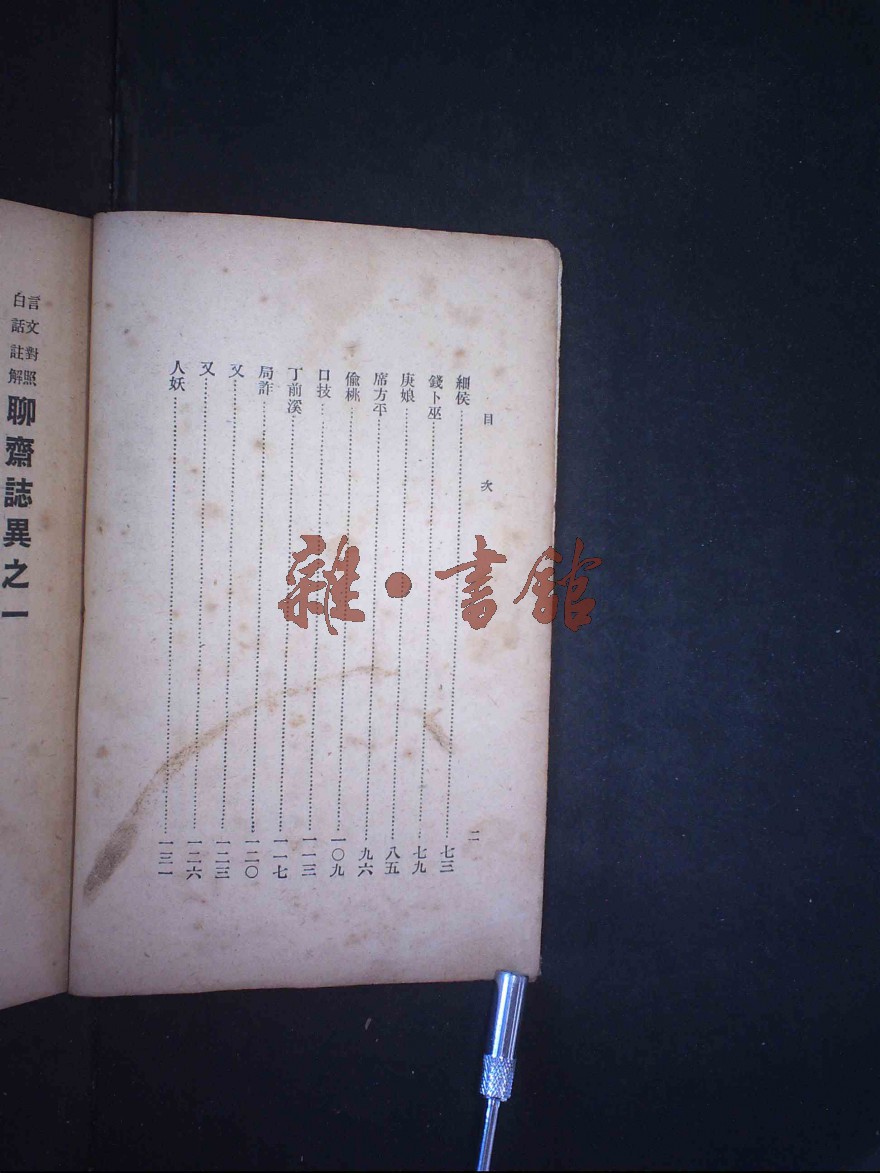 目次
二
細侯……七三
錢卜巫……七九
庚娘……八五
席方平……九六
偷桃……一〇九
口技……一一三
丁前溪……一一七
局詐……一二〇
又……一二三
又……一二六
人妖……一三一
言文對照
白話註解
聊齋誌異之一
雜·書館